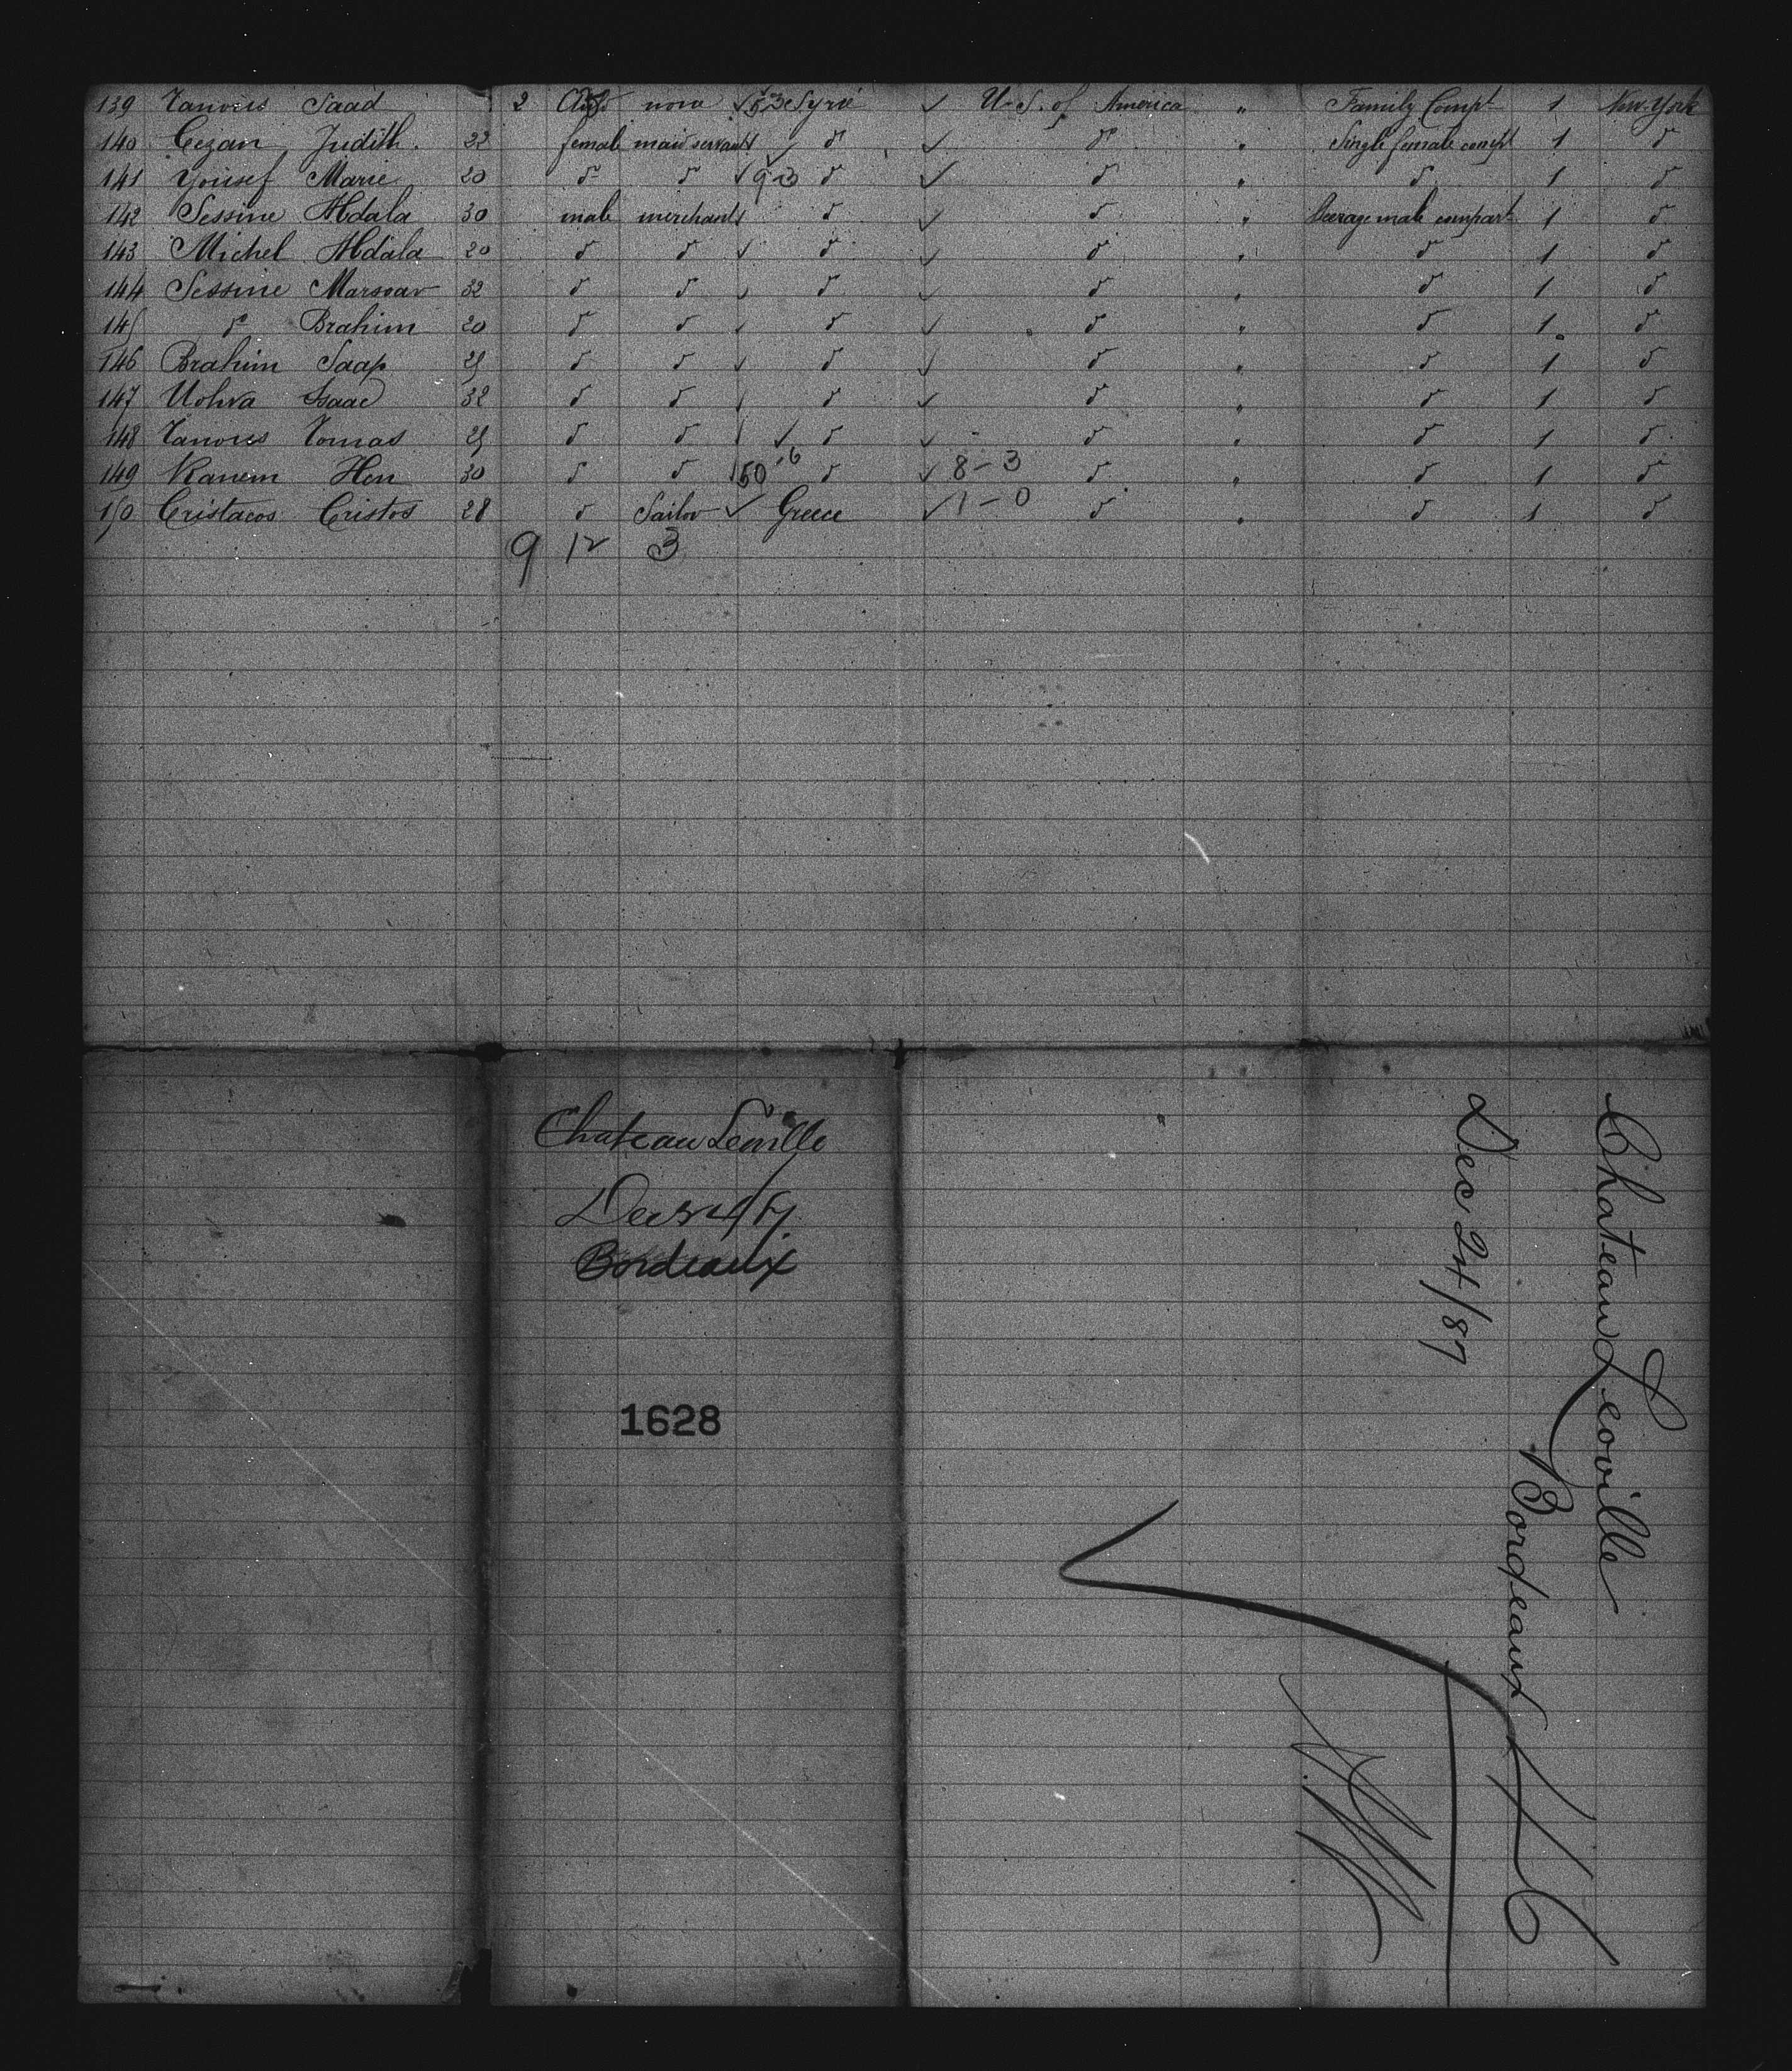 139 Tanous Saad 2 nova 53 Syrie U-S. of America " Family Compt 1 New-York
140 Cezan Judith. 22 female maid servant d° d° " Single female compt 1 d°
141 Yousef Marie 20 d° d° 93 d° d° " d° 1 d°
142 Sessine Abdala 30 male merchant d° d° " Steerage male compart 1 d°
143 Michel Abdala 20 d° d° d° d° " d° 1 d°
144 Sessine 32 d° d° d° d° " d° 1 d°
145 d° Brahim 20 d° d° d° d° " d° 1 d°
146 Brahim Saap 25 d° d° d° d° " d° 1 d°
147 Isaac 32 d° d° d° d° " d° 1 d°
148 Tanous Tomas 25 d° d° d° d° " d° 1 d°
149 Kanem Hen 30 d° d° 50 6 d° 8-3 d° " d° 1 d°
150 Cristacos Cristos 28 d° Sailor Greece 1-0 d° " d° 1 d°
9 12 3
Chateau Leoville
Dec 24/87
Bordeaux
1628
Chateau Leoville
Bordeaux
Dec 24/87